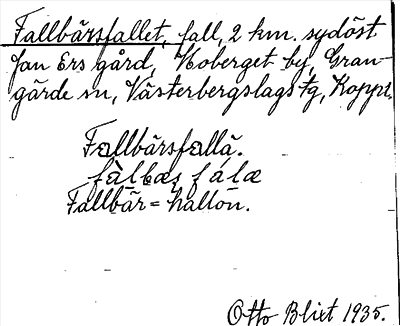 Fallbärsfallet, fall, 2 km. sydöst
Jan Ers gård, Hoberget by, Gran-
gärde sn, Västerbergslags tg, Koppl.
Fallbärsfallä.
fàlbæs fálæ
Fallbär = hallon.
Otto Blixt 1935.